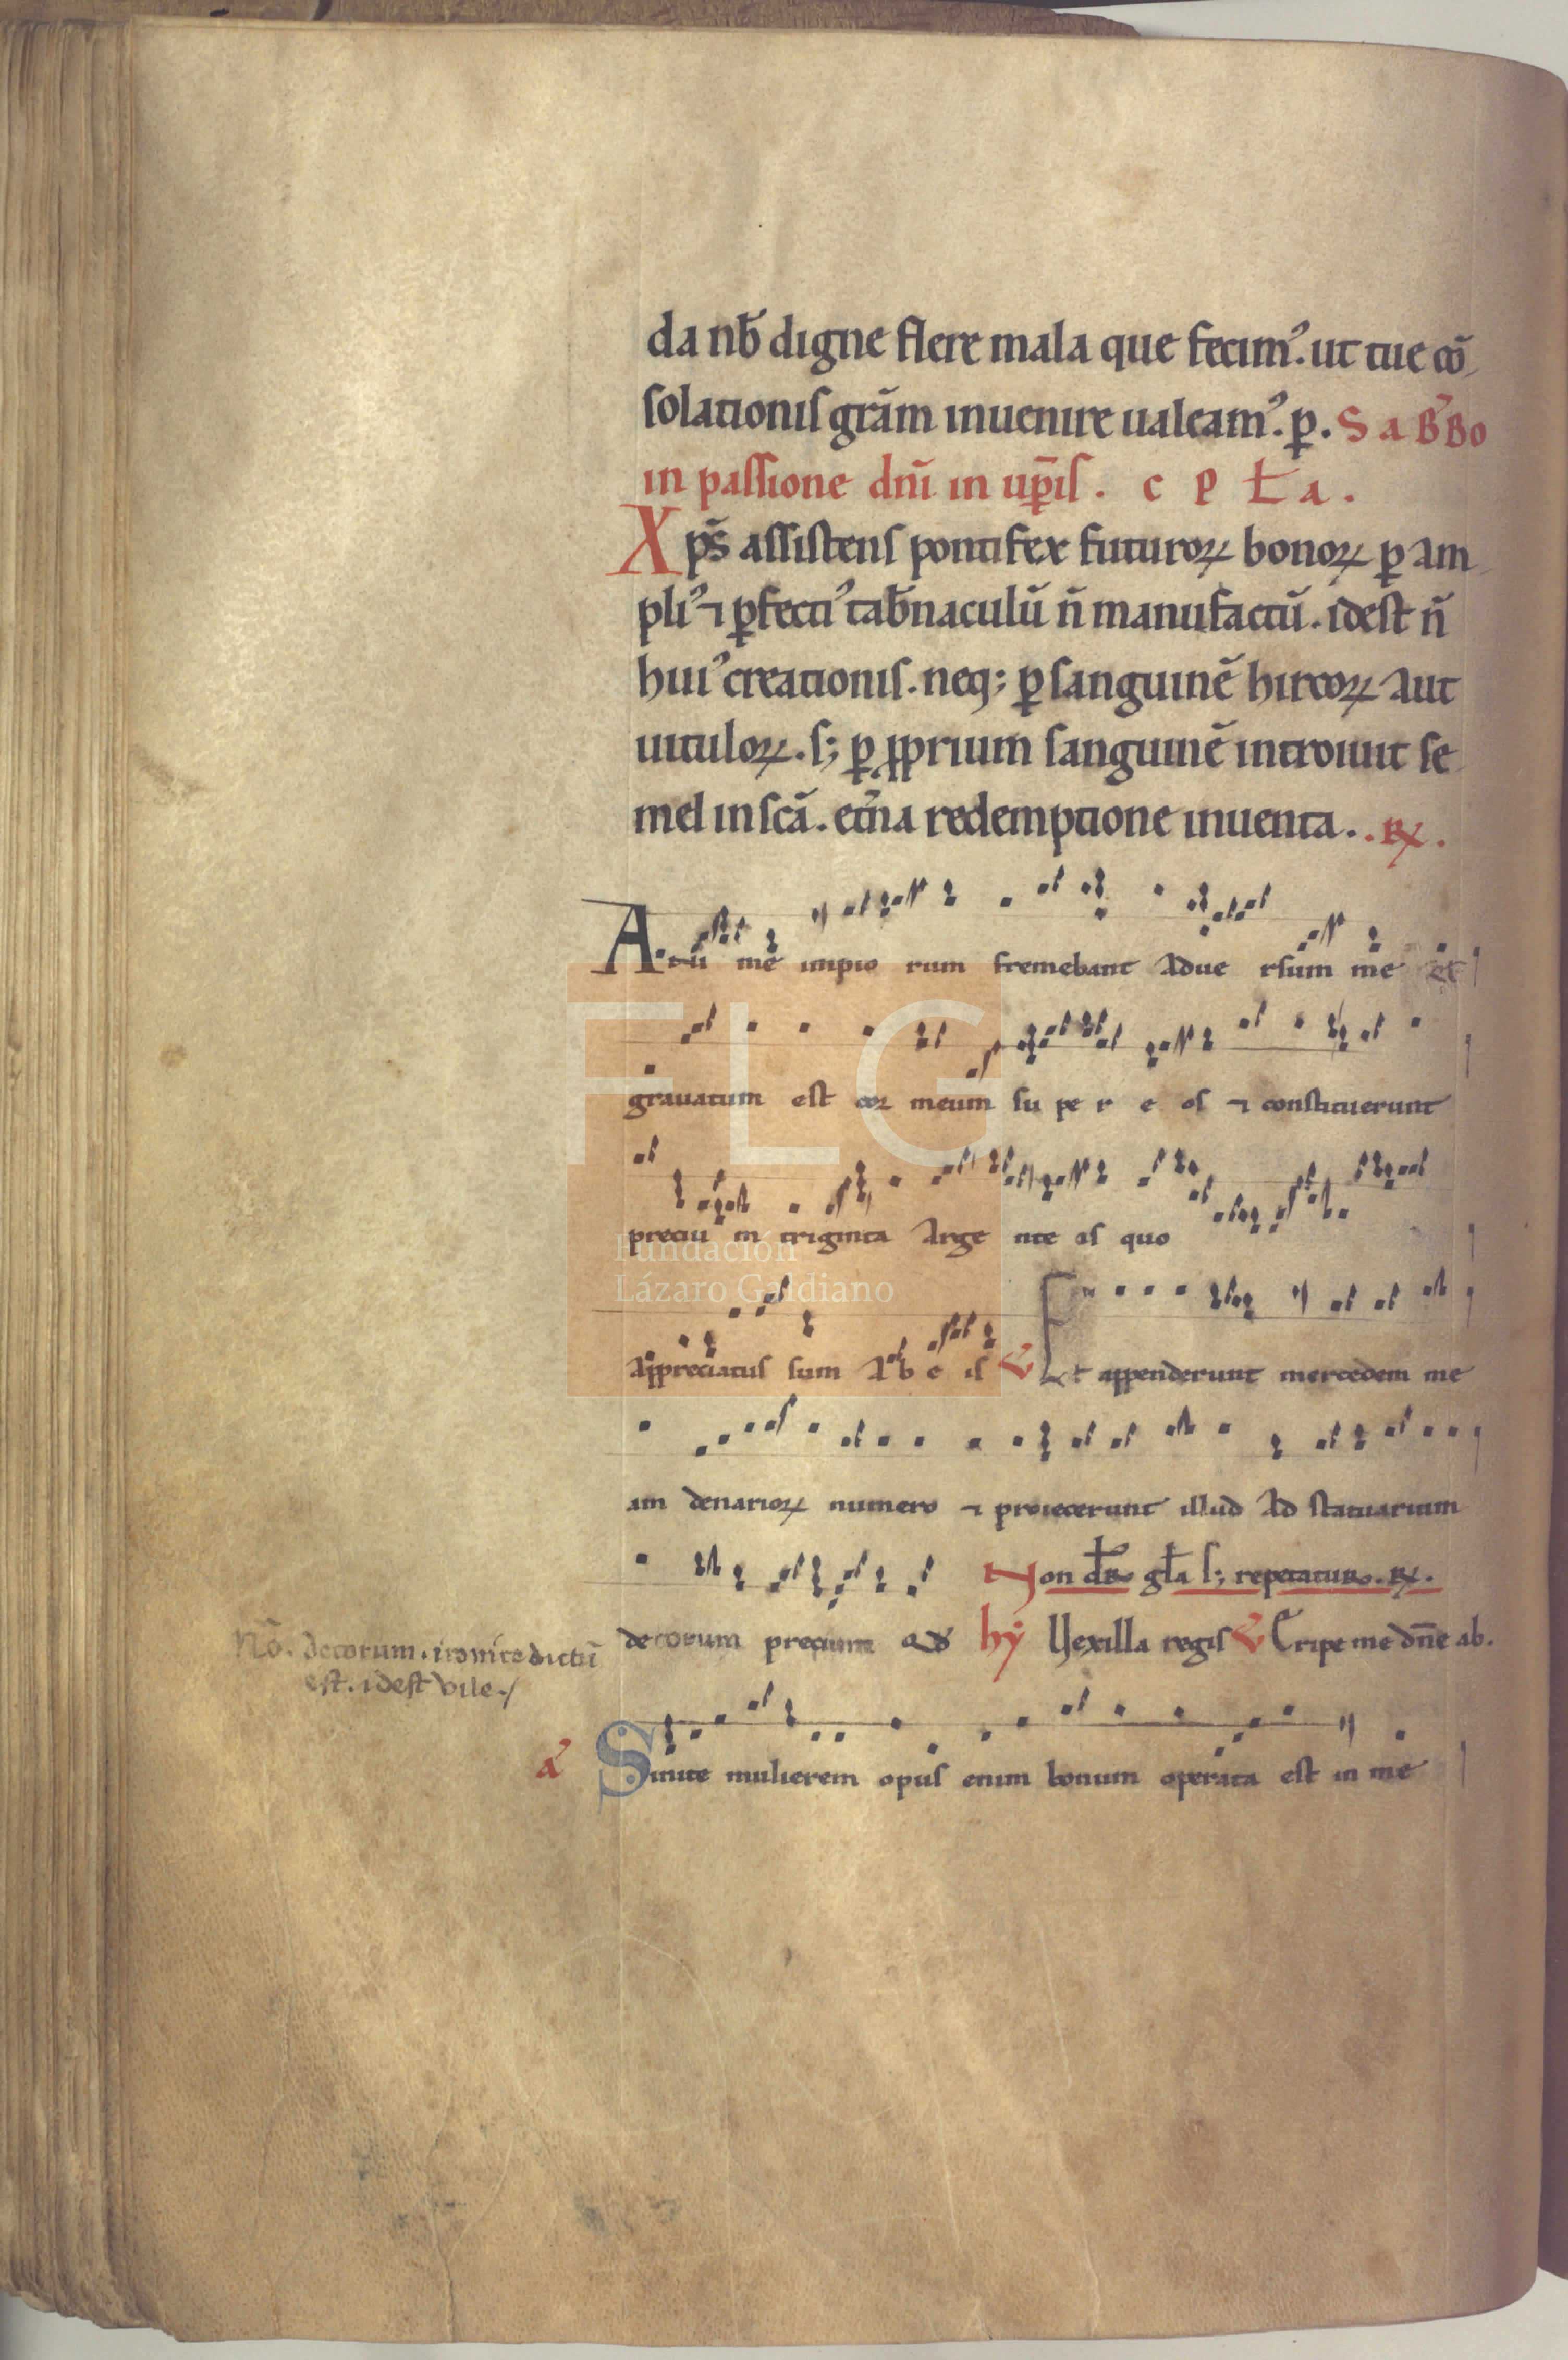 da nb̄ digne flere mala que fecimꝰ. ut tue cō
solationis grām inuenire ualeamꝰ. ꝑ. SaBꝰBo
in passione dn̄i in uꝑ̄is. c p ł a.
Xp̄s assistens pontifex futuroꝝ bonoꝝ ꝑ am
pliꝰ ⁊ ꝑfectiꝰ tab̄naculū n̄ manufactū. idest n̄
huiꝰ creationis. neq; ꝑ sanguinē hircoꝝ aut
uituloꝝ. s; ꝑ ꝓprium sanguinē introiuit se
mel in scā. et̄na redemptione inuenta. ℞.
A tū me impio rum fremebant adue rsum me et
grauatum est cor meum su pe r e os ⁊ constituerunt
preciu m triginta arge nte os quo
Fundación
Lázaro Galdiano
FLG
appreciatus sum ab e is Et appenderunt mercedem me
am denarioꝝ numero ⁊ proiecerunt illud ad statuarium
Non dr̄ gła s; repetatur. ℞.
decorum precium qd hȳ Vexilla regis Eripe me dn̄e ab.
Nō. decorum. ironice dictū
est. idest vile./
a Sinite mulierem opus enim bonum operata est in me